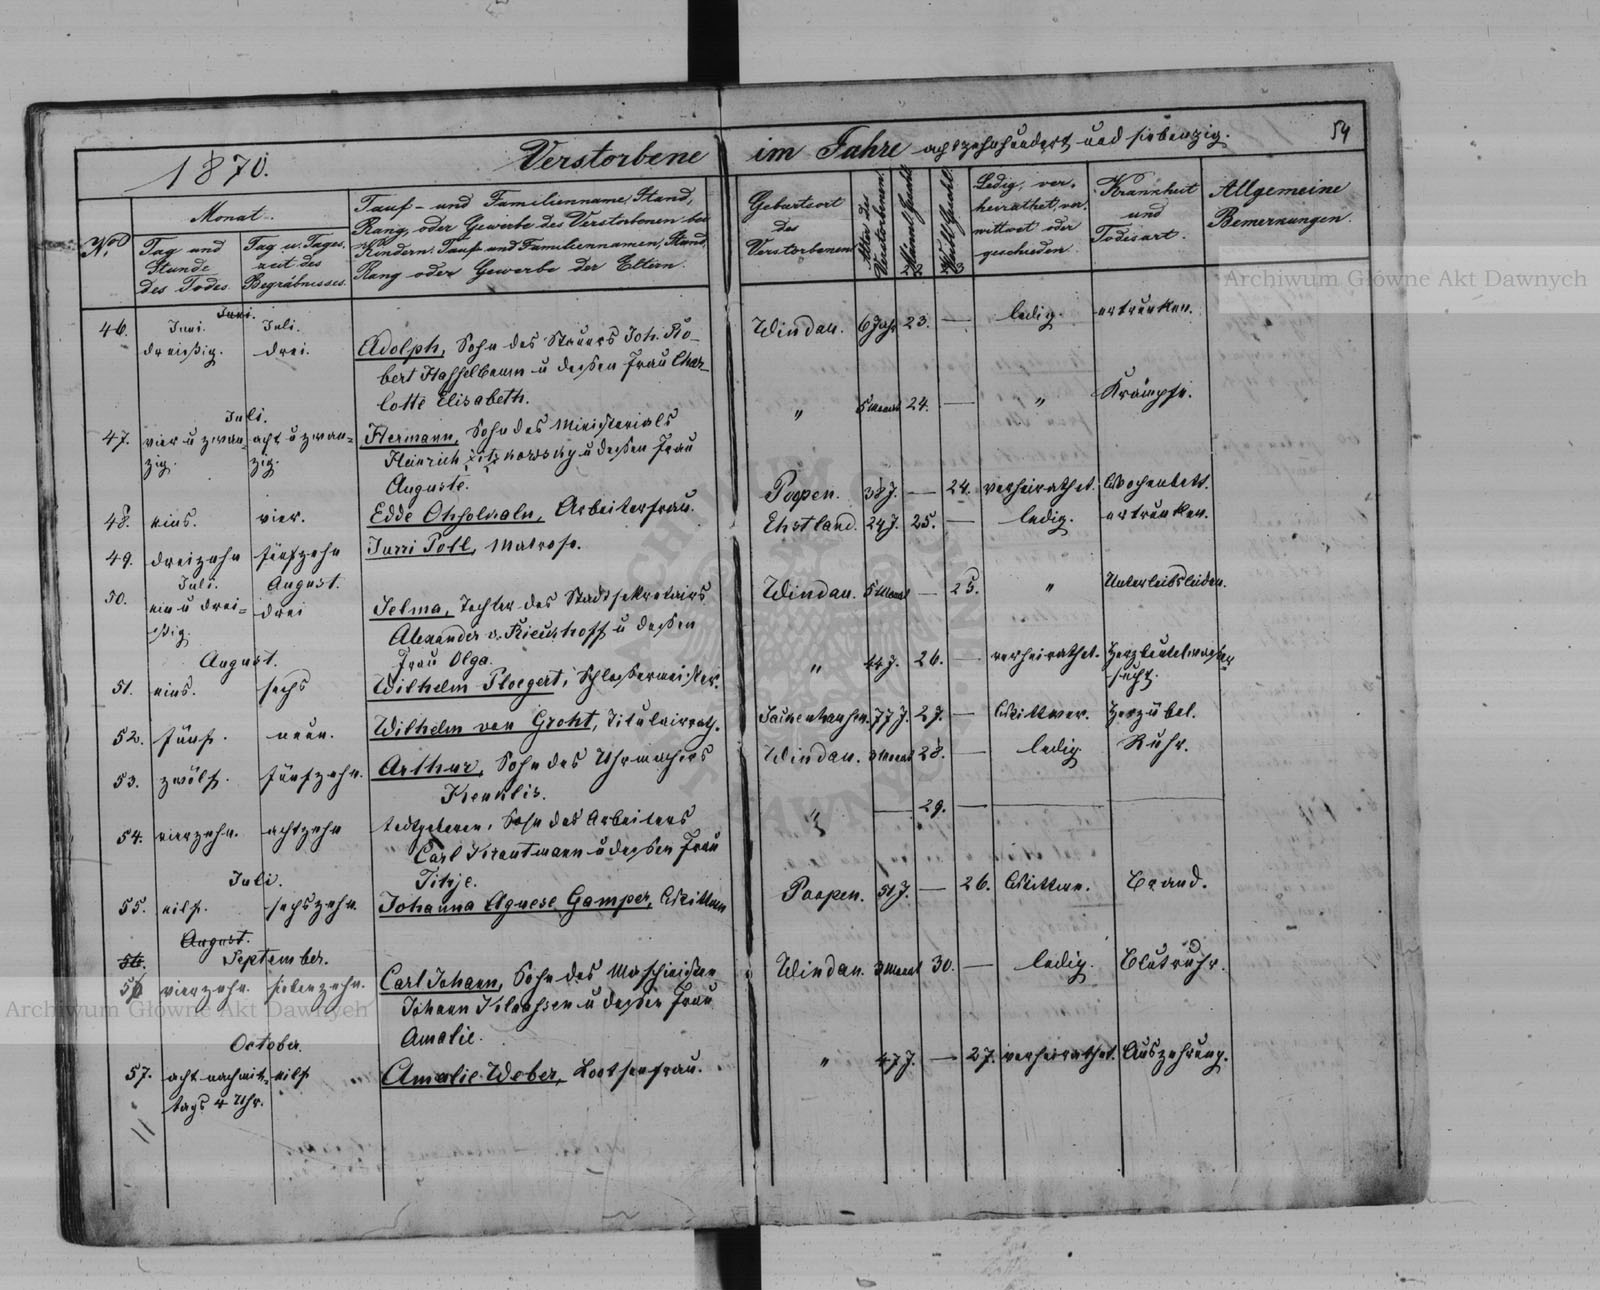 54
1870.
Verstorbene im Jahre achtzehnhundert und siebenzig.
No.
Monat.
Tag und Stunde des Todes.
Tag u. Tageszeit des Begräbnisses.
Tauf- und Familienname, Stand,
Rang, oder Gewerbe des Verstorbenen bei
Kindern. Tauf- und Familiennamen, Stand,
Rang oder Gewerbe der Eltern.
Geburtsort des Verstorbenen
Alter des Verstorbenen.
Männl. Geschl.
Weibl. Geschl.
Ledig, ver-
heirathet, ver-
wittwet oder
geschieden.
Krankheit
und
Todesart.
Allgemeine
Bemerkungen.
Juni.
46. Juni. Juli.
dreißig. drei.
Adolph, Sohn des Joh. Ro-
bert Hasselbaum u dessen Frau Char-
lotte Elisabeth.
Windau. 6 Jahr 23. — ledig. ertrunken.
Juli.
47. vier u zwan- acht u zwan-
zig. zig.
Hermann, Sohn des Ministerials
Heinrich u dessen Frau
Auguste.
" 5 Monat 24. — " Krämpfe.
48. eins. vier. Edde, Arbeiterfrau.
38 J. — 24. verheirathet. Wochenbett.
49. dreizehn fünfzehn Jurri, Matrose.
Ehstland. 24 J. 25. — ledig. ertrunken.
50. Juli. August.
ein u drei- drei
ßig.
Selma, Tochter des Stadtsekretairs
Alexander v. u dessen
Frau Olga.
Windau. 5 Monat — 25. " Unterleibsleiden.
August.
51. eins. sechs Wilhelm Ploegert, Schlossermeister.
" 44 J. 26. — verheirathet.
52. fünf. neun. Wilhelm von Groht, Titulairrath.
77 J. 27. — Wittwer. Herzübel.
53. zwölf. fünfzehn. Arthur, Sohn des Uhrmachers
Windau. 3 Monat 28. — ledig Ruhr.
54. vierzehn. achtzehn todtgeboren, Sohn des Arbeiters
Carl Krautmann u dessen Frau
" — 29. —
Juli.
55. eilf. sechszehn. Johanna Agnese Gamper, Wittwe
51 J. — 26. Wittwe. Brand.
August.
September.
56.
56 vierzehn. siebenzehn. Carl Johann, Sohn des Maschinisten
Johann u dessen Frau
Amalie.
Windau. 3 Monat 30. — ledig. Blutruhr.
October.
57. acht nachmit- eilf
tags 4 Uhr.
Amalie Weber, Lootsenfrau.
" 47 J. — 27. verheirathet. Auszehrung.
Archiwum Główne Akt Dawnych
Archiwum Główne Akt Dawnych